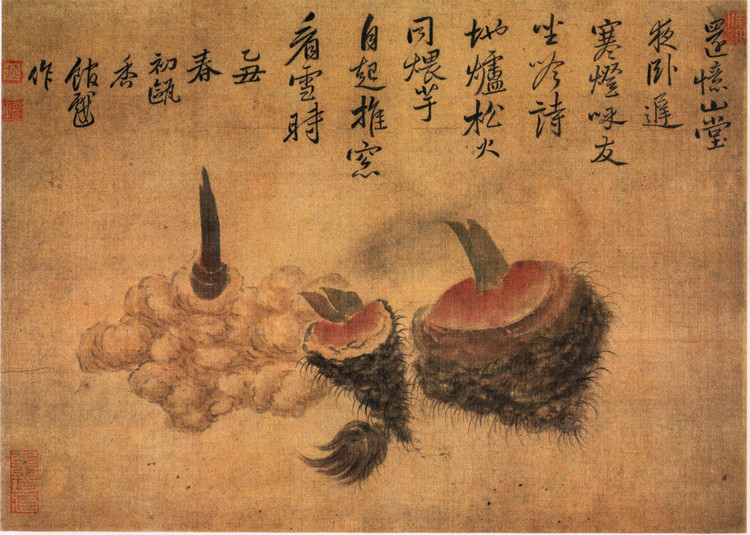 還憶山堂
夜臥遲
寒燈呼友
坐吟詩
地爐松火
同煨芋
自起推窓
看雪時
乙丑
春
初甌
香
館戲
作